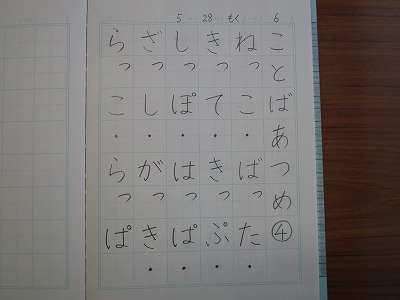 5 28 もく 6
ことばあつめ④
ねっこ・ばった・
きって・きっぷ・
しっぽ・はっぱ・
ざっし・がっき・
らっこ・らっぱ